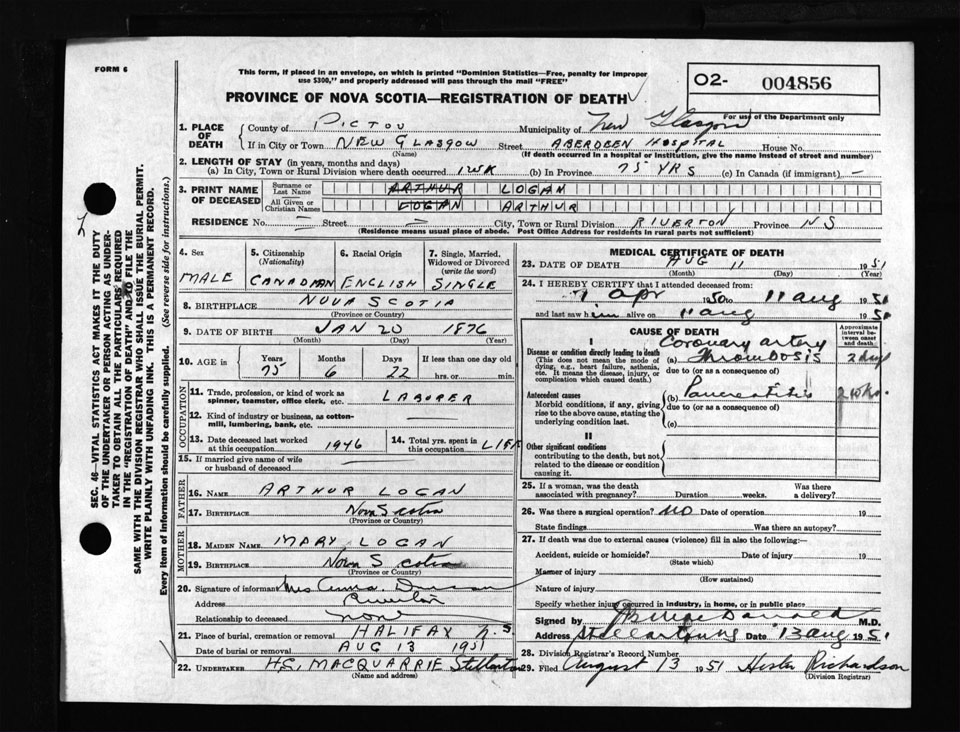 FORM 6
This form, if placed in an envelope, on which is printed "Dominion Statistics—Free, penalty for improper
use $300," and properly addressed will pass through the mail "FREE"
O2- 004856
PROVINCE OF NOVA SCOTIA—REGISTRATION OF DEATH
For use of the Department only
1. PLACE OF DEATH
County of PICTOU Municipality of New Glasgow
If in City or Town NEW GLASGOW Street ABERDEEN HOSPITAL House No.
(Name) (If death occurred in a hospital or institution, give the name instead of street and number)
2. LENGTH OF STAY (in years, months and days)
(a) In City, Town or Rural Division where death occurred 1 WK (b) In Province 75 YRS (c) In Canada (if immigrant) —
3. PRINT NAME OF DECEASED
Surname or Last Name ARTHUR LOGAN
All Given or Christian Names LOGAN ARTHUR
RESIDENCE No. — Street — City, Town or Rural Division RIVERTON Province N S
(Residence means usual place of abode. Post Office Address for residents in rural parts not sufficient)
4. Sex
MALE
5. Citizenship (Nationality)
CANADIAN
6. Racial Origin
ENGLISH
7. Single, Married, Widowed or Divorced (write the word)
SINGLE
8. BIRTHPLACE NOVA SCOTIA
(Province or Country)
9. DATE OF BIRTH JAN 20 1876
(Month) (Day) (Year)
10. AGE in Years Months Days If less than one day old
75 6 22 hrs. or min.
OCCUPATION
11. Trade, profession, or kind of work as spinner, teamster, office clerk, etc. LABORER
12. Kind of industry or business, as cotton-mill, lumbering, bank, etc.
13. Date deceased last worked at this occupation 1946
14. Total yrs. spent in this occupation LIFE
15. If married give name of wife or husband of deceased
FATHER
16. NAME ARTHUR LOGAN
17. BIRTHPLACE Nova Scotia
(Province or Country)
MOTHER
18. MAIDEN NAME MARY LOGAN
19. BIRTHPLACE Nova Scotia
(Province or Country)
20. Signature of informant Mrs
Address Riverton
Relationship to deceased none
21. Place of burial, cremation or removal HALIFAX N.S.
Date of burial, cremation or removal AUG 13 1951
22. UNDERTAKER H.S. MACQUARRIE Stellarton
(Name and address)
MEDICAL CERTIFICATE OF DEATH
23. DATE OF DEATH AUG 11 1951
(Month) (Day) (Year)
24. I HEREBY CERTIFY that I attended deceased from:
1 apr 1950 to 11 aug 1951
and last saw him alive on 11 aug 1951
CAUSE OF DEATH
Approximate interval between onset and death
I
Disease or condition directly leading to death
(This does not mean the mode of dying, e.g., heart failure, asthenia, etc. It means the disease, injury, or complication which caused death.)
(a) Coronary artery
Thrombosis 2 days
due to (or as a consequence of)
Antecedent causes
Morbid conditions, if any, giving rise to the above cause, stating the underlying condition last.
(b) Pancreatitis 2 wks.
due to (or as a consequence of)
(c)
II
Other significant conditions contributing to the death, but not related to the disease or condition causing it.
25. If a woman, was the death associated with pregnancy? Duration weeks. Was there a delivery?
26. Was there a surgical operation? NO Date of operation 19
State findings Was there an autopsy?
27. If death was due to external causes (violence) fill in also the following:—
Accident, suicide or homicide? Date of injury 19
(State which)
Manner of injury
(How sustained)
Nature of injury
Specify whether injury occurred in industry, in home, or in public place
Signed by M.D.
Address Date 13 aug 1951
28. Division Registrar's Record Number
29. Filed August 13 1951 Hester Richardson
(Division Registrar)
SEC. 46—VITAL STATISTICS ACT MAKES IT THE DUTY
OF THE UNDERTAKER OR PERSON ACTING AS UNDER-
TAKER TO OBTAIN ALL THE PARTICULARS REQUIRED
IN THE "REGISTRATION OF DEATH" AND TO FILE THE
SAME WITH THE DIVISION REGISTRAR WHO SHALL ISSUE THE BURIAL PERMIT.
WRITE PLAINLY WITH UNFADING INK. THIS IS A PERMANENT RECORD.
Every item of information should be carefully supplied. (See reverse side for instructions.)